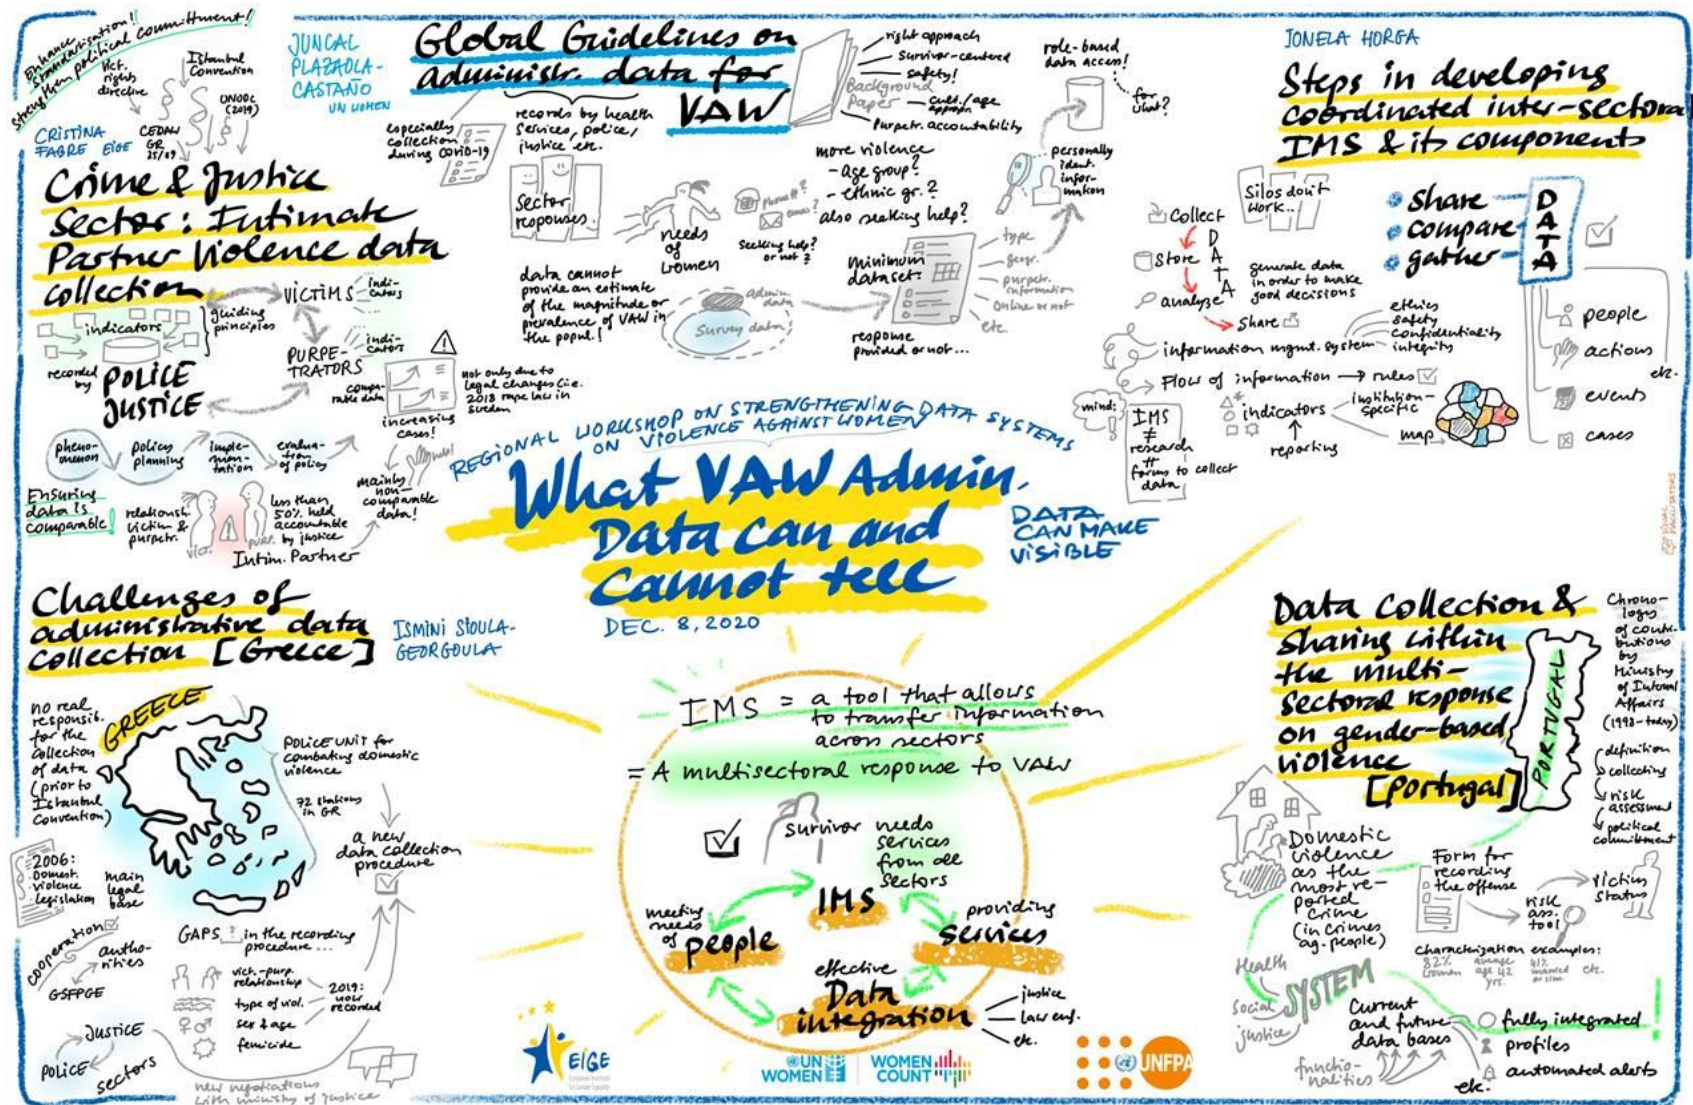 Enhance
standardisation!
strengthen political commitment!
Vict.
rights
directive
Istanbul
Convention
UNODC
(2019)
CEDAW
GR
35/19
CRISTINA
FABRE EIGE
Crime & Justice
Sector: Intimate
Partner Violence data
collection
indicators
guiding
principles
recorded
by
POLICE
JUSTICE
VICTIMS
indi-
cators
PURPE-
TRATORS
indi-
cators
compa-
rable data
not only due to
legal changes (i.e.
2018 rape law in
Sweden
increasing
cases!
pheno-
menon
policy
planning
imple-
men-
tation
evalua-
tion
of policy
Ensuring
data is
comparable!
relationsh.
victim &
purpetr.
VICT.
PURP.
less than
50% held
accountable
by justice
Intim. Partner
mainly
non-
comparable
data!
JUNCAL
PLAZAOLA-
CASTAÑO
UN WOMEN
Global Guidelines on
administr. data for
VAW
especially
collection
during Covid-19
records by health
services, police,
justice etc.
Sector
reponses
needs
of
women
phone #?
Seeking help?
or not?
data cannot
provide an estimate
of the magnitude or
prevalence of VAW in
the popul.!
admin.
data
survey data
right approach
survivor-centered
safety!
Background
Paper
cult./age
Purpetr. accountability
more violence
- age group?
- ethnic gr.?
also seeking help?
role-based
data access!
for
what?
personally
ident.
infor-
mation
minimum
dataset:
type
geogr.
purpetr.
information
Online or not
etc.
response
provided or not...
JONELA HORGA
Steps in developing
coordinated inter-sectoral
IMS & its components
Silos don't
work...
share
compare
gather
DATA
Collect
Store
analyze
Share
DATA
generate data
in order to make
good decisions
information mgmt. system
ethics
safety
confidentiality
integrity
Flow of information → rules
indicators
institution-
specific
map
reporting
mind:
IMS
≠
research
≠
forms to collect
data
people
actions
events
cases
etc.
VISUAL
FACILITATORS
REGIONAL WORKSHOP ON STRENGTHENING DATA SYSTEMS
ON VIOLENCE AGAINST WOMEN
What VAW Admin.
Data can and
Cannot tell
DATA
CAN MAKE
VISIBLE
DEC. 8, 2020
Challenges of
administrative data
collection [Greece]
ISMINI SIOULA-
GEORGOULA
no real
responsib.
for the
collection
of data
(prior to
Istanbul
Convention)
GREECE
POLICE UNIT for
combating domestic
violence
72 stations
in GR
a new
data collection
procedure
2006:
Domest.
violence
legislation
main
legal
base
cooperation
autho-
rities
GSFPGE
GAPS ? in the recording
procedure...
vict.-purp.
relationship
type of viol.
sex & age
femicide
2019:
now
recorded
JUSTICE
POLICE
sectors
new negotiations
with ministry of justice
IMS = a tool that allows
to transfer information
across sectors
= A multisectoral response to VAW
survivor needs
services
from all
sectors
IMS
meeting
needs
of
people
providing
services
effective
Data
integration
justice
law enf.
etc.
EIGE
European Institute
for Gender Equality
UN
WOMEN
WOMEN
COUNT
UNFPA
Data Collection &
Sharing within
the multi-
sectoral response
on gender-based
violence
[Portugal]
PORTUGAL
Chrono-
logy
of contri-
butions
by
Ministry
of Internal
Affairs
(1998-today)
definition
collecting
risk
assessment
political
commitment
Domestic
violence
as the
most re-
ported
crime
(in crimes
ag. people)
Form for
recording
the offense
risk
ass.
tool
victim
status
characterization examples:
82%
women
average
age 42
yrs.
41%
married
etc.
Health
Social
justice
SYSTEM
Current
and future
data bases
functio-
nalities
fully integrated
profiles
automated alerts
etc.